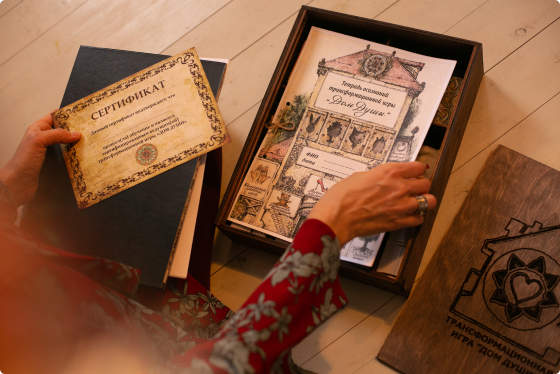 СЕРТИФИКАТ
Данный сертификат подтверждает, что
трансформационной игры «ДОМ ДУШИ»
Тетрадь
трансформационной игры
"Дом Души"
ФИО
Дата
ТРАНСФОРМАЦИОННАЯ
ИГРА "ДОМ ДУШИ"